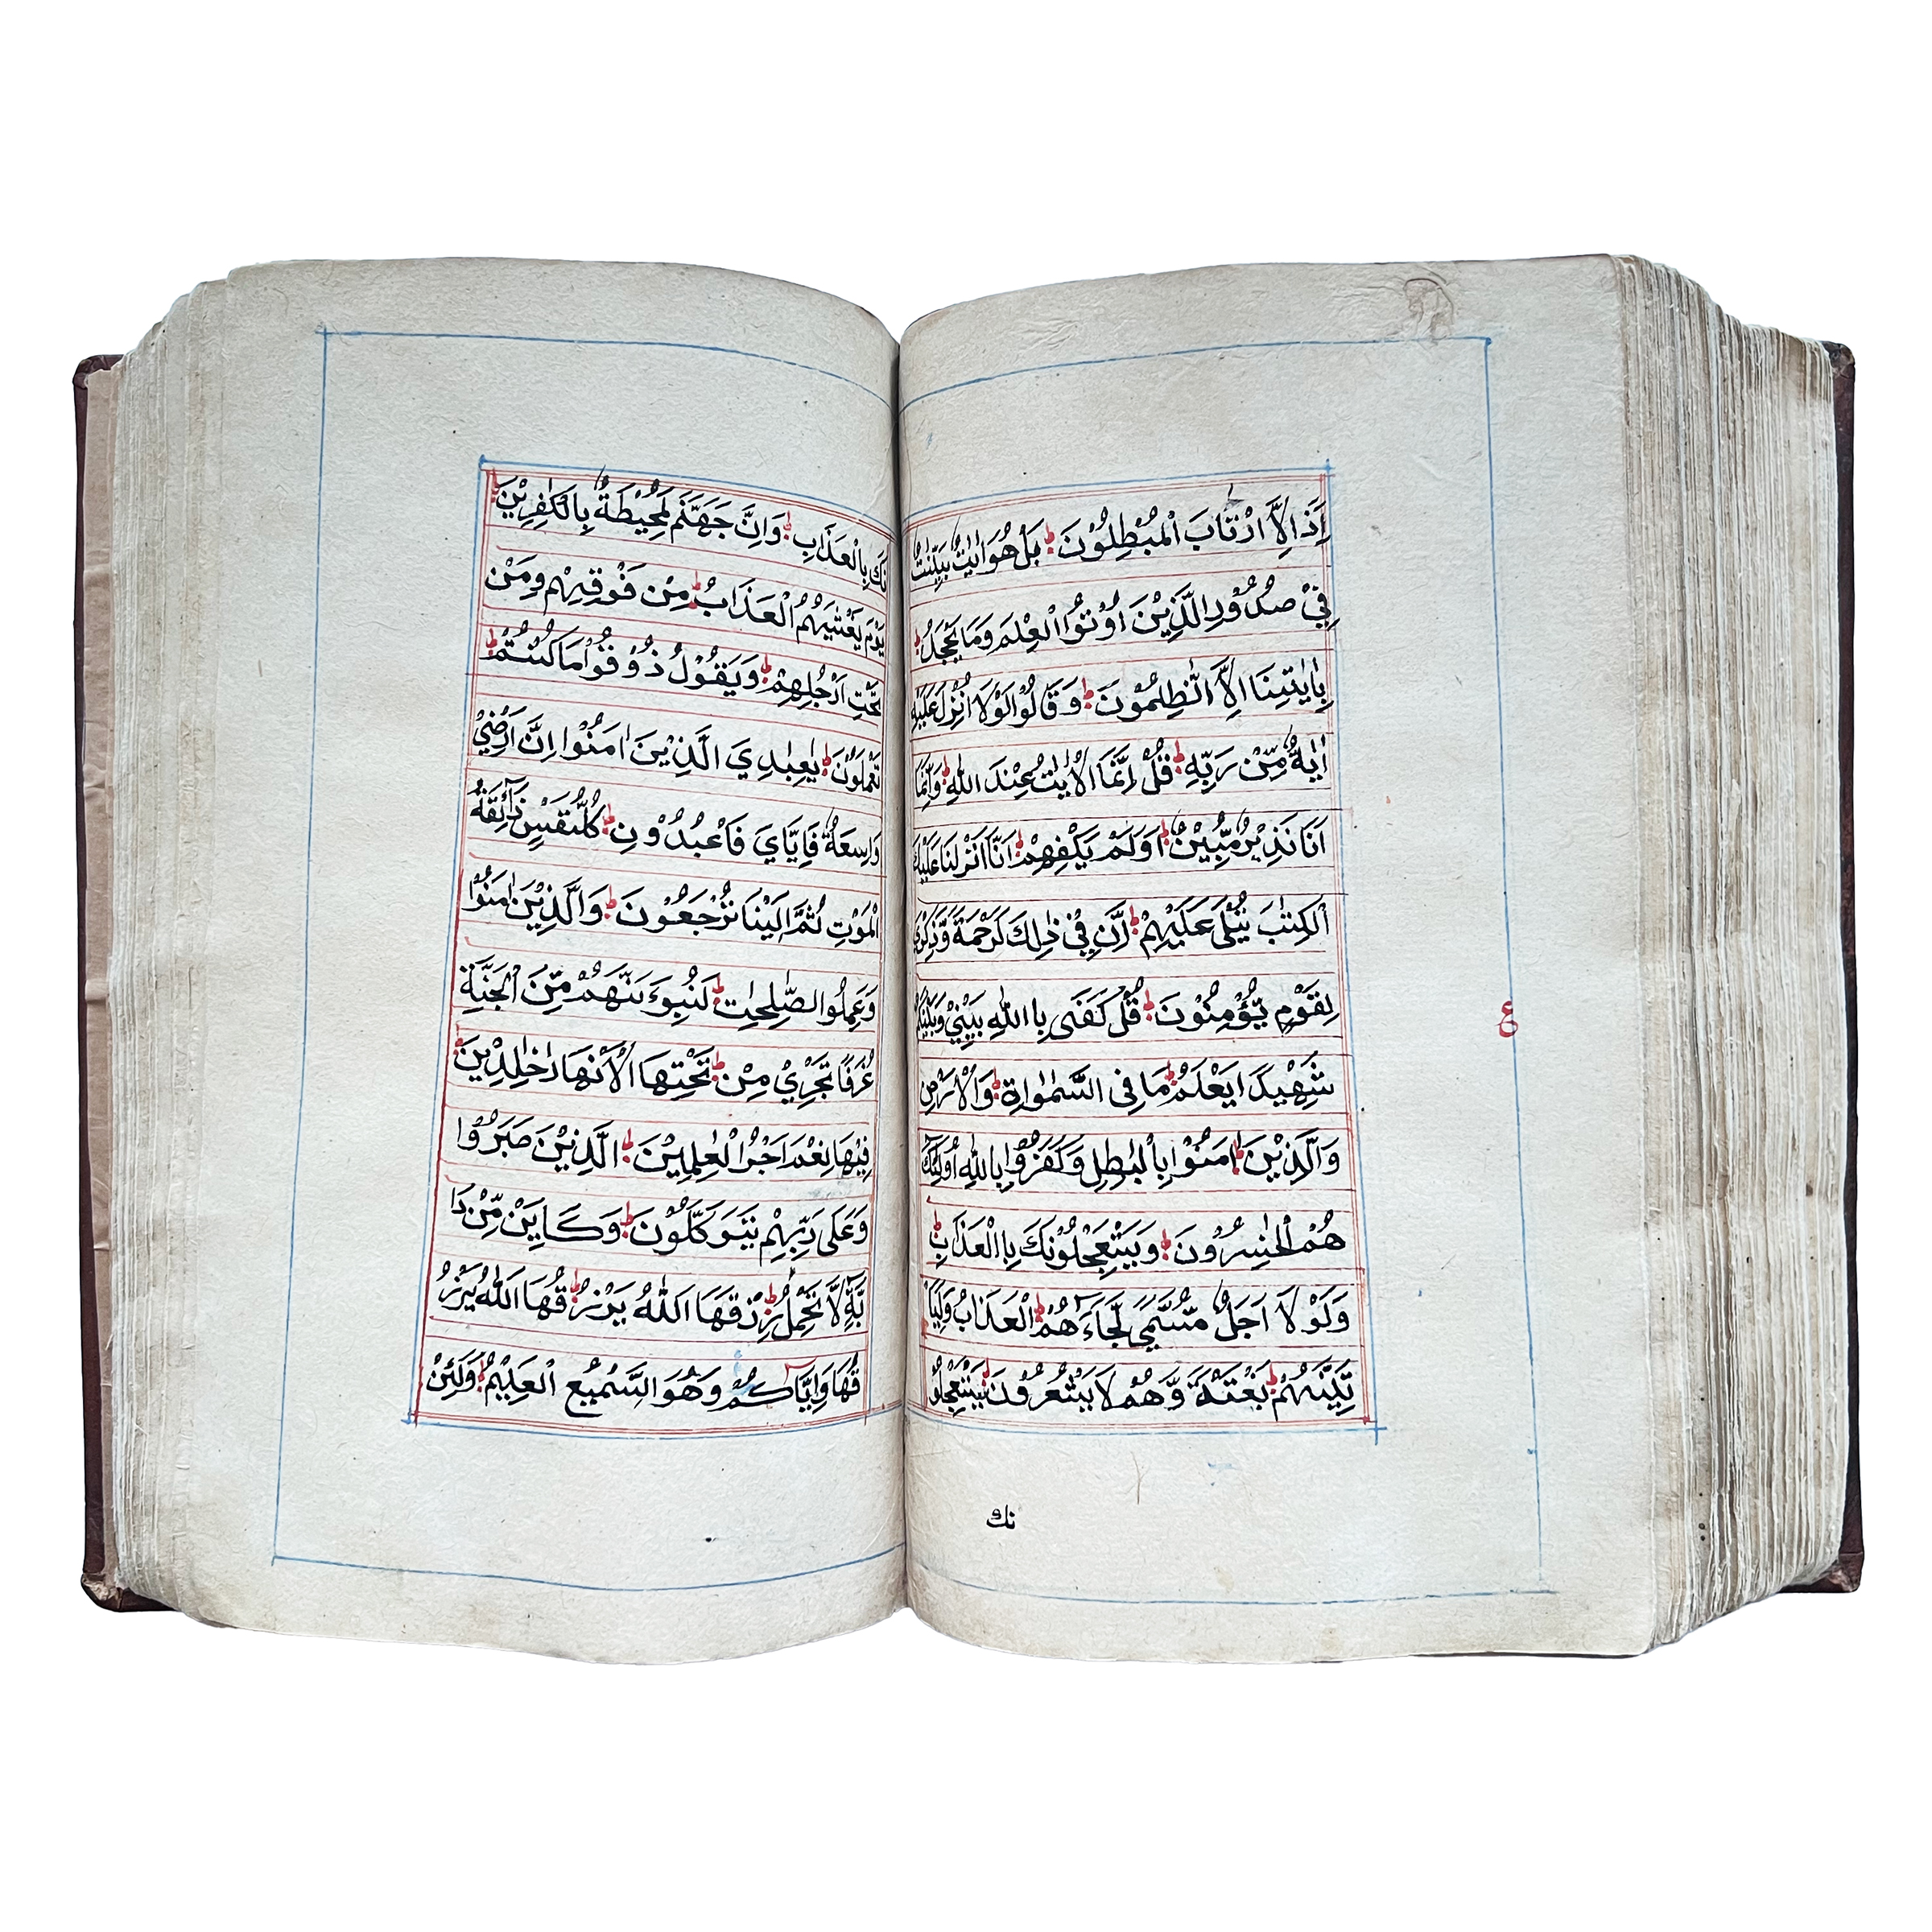 اِذَ الاَّ ارْتَابَ الْمُبْطِلُوْنَ ط بَلْ هُوَ اٰيٰتٌ بَيِّنٰتٌ
فِيْ صُدُوْرِ الَّذِيْنَ اُوْتُوا الْعِلْمَ وَمَا يَجْحَدُ ط
بِاٰيٰتِنَا اِلاَّ الظّٰلِمُوْنَ ط وَقَالُوْا لَوْلَا اُنْزِلَ عَلَيْهِ
اٰيَةٌ مِّنْ رَبِّهِ ط قُلْ اِنَّمَا الْاٰيٰتُ عِنْدَ اللهِ ط وَاِنَّمَا
اَنَا نَذِيْرٌ مُّبِيْنٌ ط اَوَلَمْ يَكْفِهِمْ ط اَنَّا اَنْزَلْنَا عَلَيْكَ
الْكِتٰبَ يُتْلٰى عَلَيْهِمْ ط اِنَّ فِيْ ذٰلِكَ لَرَحْمَةً وَّذِكْرٰى
لِقَوْمٍ يُّؤْمِنُوْنَ ط قُلْ كَفٰى بِااللهِ بَيْنِيْ وَبَيْنَكُمْ
شَهِيْدَا يَعْلَمُ ط مَا فِى السَّمٰوٰاة ط وَالْاَرْضِ
وَالَّذِيْنَ ط اٰمَنُوْا بِالْبٰطِلِ وَكَفَرُوْا بِاللهِ اُولٰئِكَ
هُمُ الْخٰسِرُوْنَ ط وَيَسْتَعْجِلُوْنَكَ بِاالْعَذَابِ ط
وَلَوْلَا اَجَلٌ مُّسَمًّى لَّجَاءَهُمُ ط الْعَذَابُ وَلَيَاْ
تِيَنَّهُمْ ط بَغْتَةً وَّهُمْ لَا يَشْعُرُوْنَ ط يَسْتَعْجِلُوْ
ع
نك
نَكَ بِالْعَذَابِ ط وَاِنَّ جَهَنَّمَ لَمُحِيْطَةٌ بِالْكٰفِرِيْنَ ط
يَوْمَ يَغْشٰيهُمُ الْعَذَابُ ط مِنْ فَوْقِهِمْ وَمِنْ
تَحْتِ اَرْجُلِهِمْ ط وَيَقُوْلُ ذُوْقُوْا مَا كُنْتُمْ ط
تَعْمَلُوْنَ ط يٰعِبَادِيَ الَّذِيْنَ اٰمَنُوْا اِنَّ اَرْضِيْ
وَاسِعَةٌ فَاِيَّايَ فَاعْبُدُوْنِ ط كُلُّ نَفْسٍ ذَائِقَةُ
الْمَوْتِ ثُمَّ اِلَيْنَا تُرْجَعُوْنَ ط وَالَّذِيْنَ اٰمَنُوْا
وَعَمِلُوا الصّٰلِحٰتِ ط لَنُبَوِّءَنَّهُمْ مِّنَ الْجَنَّةِ
غُرَفًا تَجْرِيْ مِنْ ط تَحْتِهَا الْاَنْهَارُ خٰلِدِيْنَ ط
فِيْهَا نِعْمَ اَجْرُ الْعٰمِلِيْنَ ط الَّذِيْنَ صَبَرُوْا
وَعَلٰى رَبِّهِمْ يَتَوَكَّلُوْنَ ط وَكَاَيِّنْ مِّنْ دَا
بَّةٍ لَّا تَحْمِلُ ط رِزْقَهَا اَللهُ يَرْزُ ط قُهَا اَللهُ يَرْزُ
قُهَا وَاِيَّاكُمْ وَهُوَ السَّمِيْعُ الْعَلِيْمُ ط وَلَئِنْ